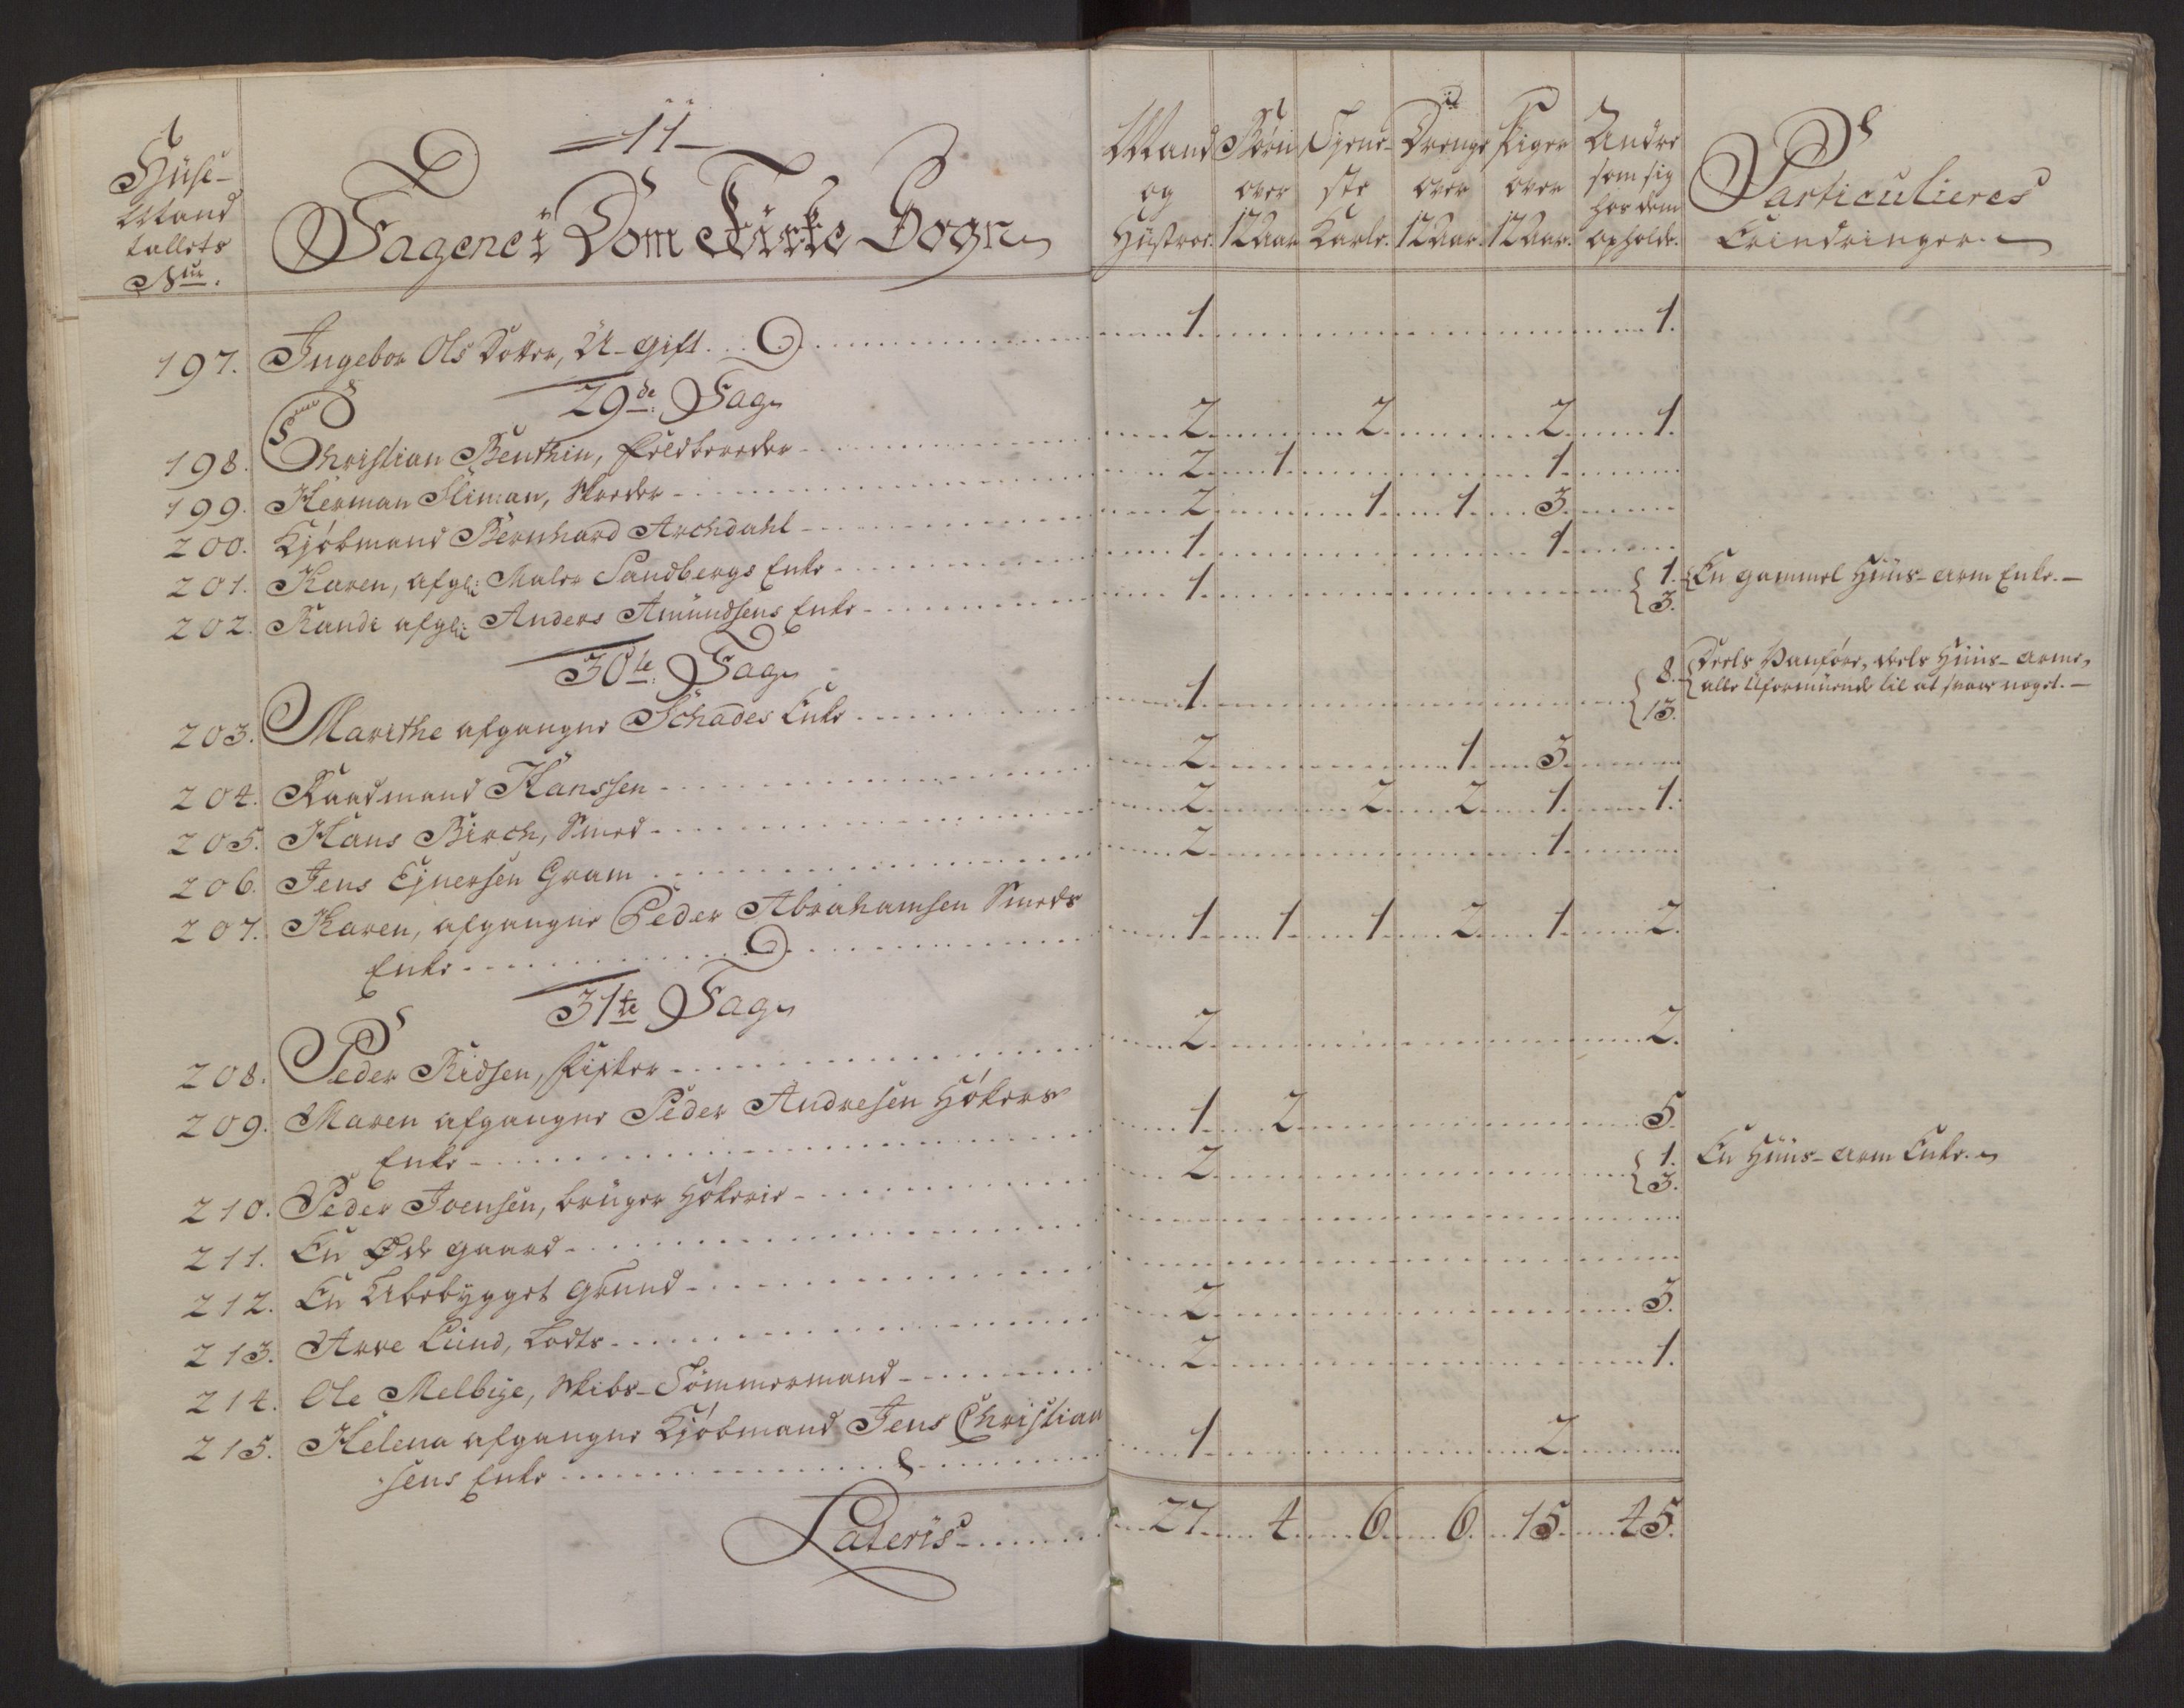 Huse-
Mand
tallets
Nr.
-11-
Tagene i Dom Kirke Sogn
Mand og Hustroe.
Børn over 12 Aar
Tjene-ste Karle.
Drenge over 12 Aar.
Piger over 12 Aar.
Andre som sig hos dem opholde.
Particulieres Erindringer.
197. Ingebor Ols Dotter, U-gift. 1. 1.
29de Tag
198. Christian Benthin, Feldbereder - 2. 2. 2. 1.
199. Herman Sliman, Skreder - 2. 1. 1.
200. Kjøbmand Bernhard Archdahl - 2. 1. 1. 3.
201. Karen, afgl: Maler Sandbergs Enke - 1. 1.
202. Randi afgl: Anders Amundsens Enke - 1. { 1. 3. { En gammel Huus-arm Enke. -
30te Tag
203. Marithe afgangne Schades Enke - 1. { 8. 13. { Deels Vanføre, deels Huus-arme,
alle Uformuende til at svare noget. -
204. Raadmand Hanssen - 2. 1. 3.
205. Hans Birch, Smed - 2. 2. 2. 1. 1.
206. Jens Ejnersen Gram 2. 1.
207. Karen, afgangne Peder Abrahamsen Smeds
Enke - 1. 1. 1. 2. 1. 2.
31te Tag
208. Peder Ridsen, Fisker - 2. 2.
209. Maren afgangne Peder Andresen Høkers
Enke - 1. 2. 5.
210. Peder Joensen, bruger Høkerie - 2. { 1. 3. En Huus-arm Enke.
211. En Øde gaard -
212. En Ubebygget grund -
213. Arve Lund, Lodts - 2. 3.
214. Ole Melbye, Skibs-Tømmermand - 2. 1.
215. Helena afgangne Kjøbmand Jens Christian
sens Enke 1. 2.
Lateris - 27. 4. 6. 6. 15. 45.